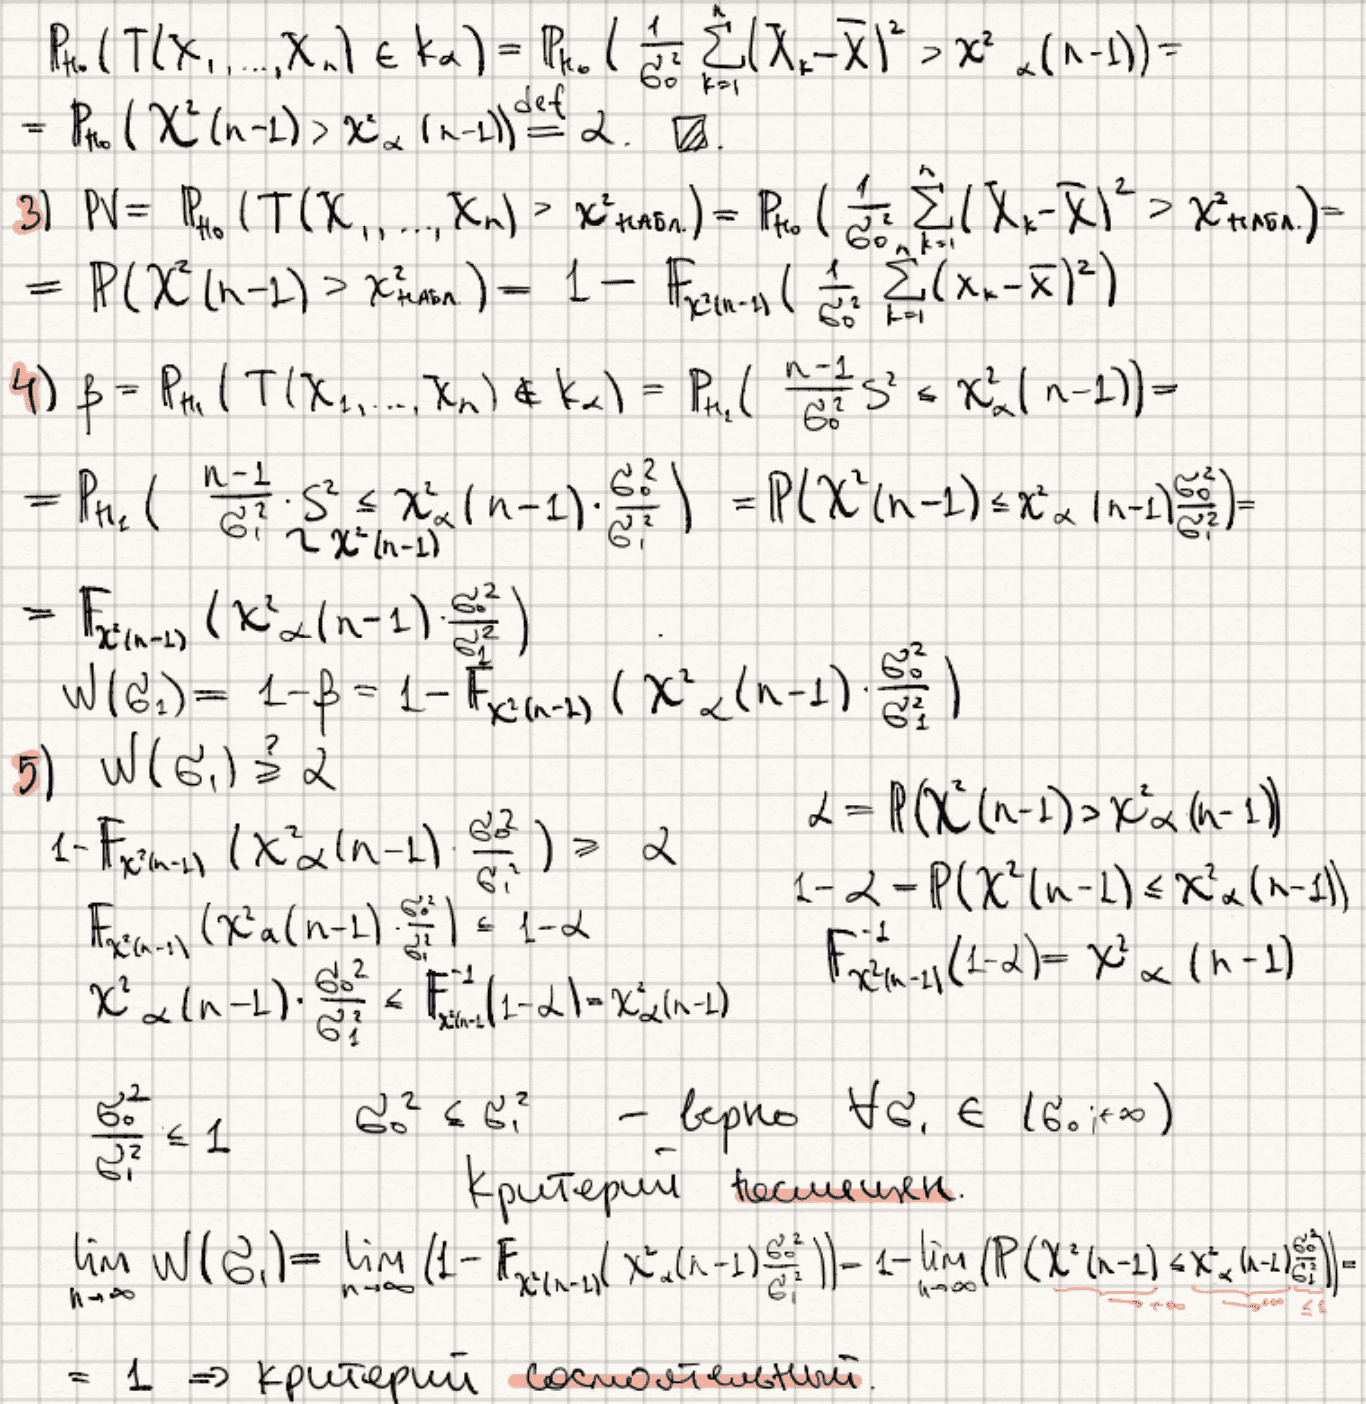 ℙ_H₀(T(X₁,...,Xₙ) ∈ K_α) = ℙ_H₀(1/σ₀² ∑_{k=1}^{n}(X_k − X̄)² > χ²_α(n−1)) =
= ℙ_H₀(χ²(n−1) > χ²_α(n−1)) =^{def} α. ▨.
3) PV = ℙ_H₀(T(X₁,...,Xₙ) > χ²_набл.) = ℙ_H₀(1/σ₀² ∑_{k=1}^{n}(X_k − X̄)² > χ²_набл.) =
= ℙ(χ²(n−1) > χ²_набл) = 1 − F_{χ²(n−1)}(1/σ₀² ∑_{k=1}^{n}(x_k − x̄)²)
4) β = ℙ_H₁(T(X₁,...,Xₙ) ∉ K_α) = ℙ_H₁((n−1)/σ₀² S² ≤ χ²_α(n−1)) =
= ℙ_H₁((n−1)/σ₁² · S² ≤ χ²_α(n−1) · σ₀²/σ₁²) = ℙ(χ²(n−1) ≤ χ²_α(n−1) σ₀²/σ₁²) =
~ χ²(n−1)
= F_{χ²(n−1)}(χ²_α(n−1) · σ₀²/σ₁²)
W(σ₁) = 1 − β = 1 − F_{χ²(n−1)}(χ²_α(n−1) · σ₀²/σ₁²)
5) W(σ₁) ≥^{?} α
α = ℙ(χ²(n−1) > χ²_α(n−1))
1 − F_{χ²(n−1)}(χ²_α(n−1) · σ₀²/σ₁²) ≥ α
1 − α = ℙ(χ²(n−1) ≤ χ²_α(n−1))
F_{χ²(n−1)}(χ²_α(n−1) · σ₀²/σ₁²) ≤ 1 − α
F⁻¹_{χ²(n−1)}(1−α) = χ²_α(n−1)
χ²_α(n−1) · σ₀²/σ₁² ≤ F⁻¹_{χ²(n−1)}(1−α) = χ²_α(n−1)
σ₀²/σ₁² ≤ 1 σ₀² ≤ σ₁² − верно ∀σ₁ ∈ (σ₀; +∞)
Критерий несмещен.
lim_{n→∞} W(σ₁) = lim_{n→∞}(1 − F_{χ²(n−1)}(χ²_α(n−1) σ₀²/σ₁²)) = 1 − lim_{n→∞}(ℙ(χ²(n−1) ≤ χ²_α(n−1) σ₀²/σ₁²)) =
→+∞ →+∞ ≤1
= 1 ⇒ критерий состоятельный.